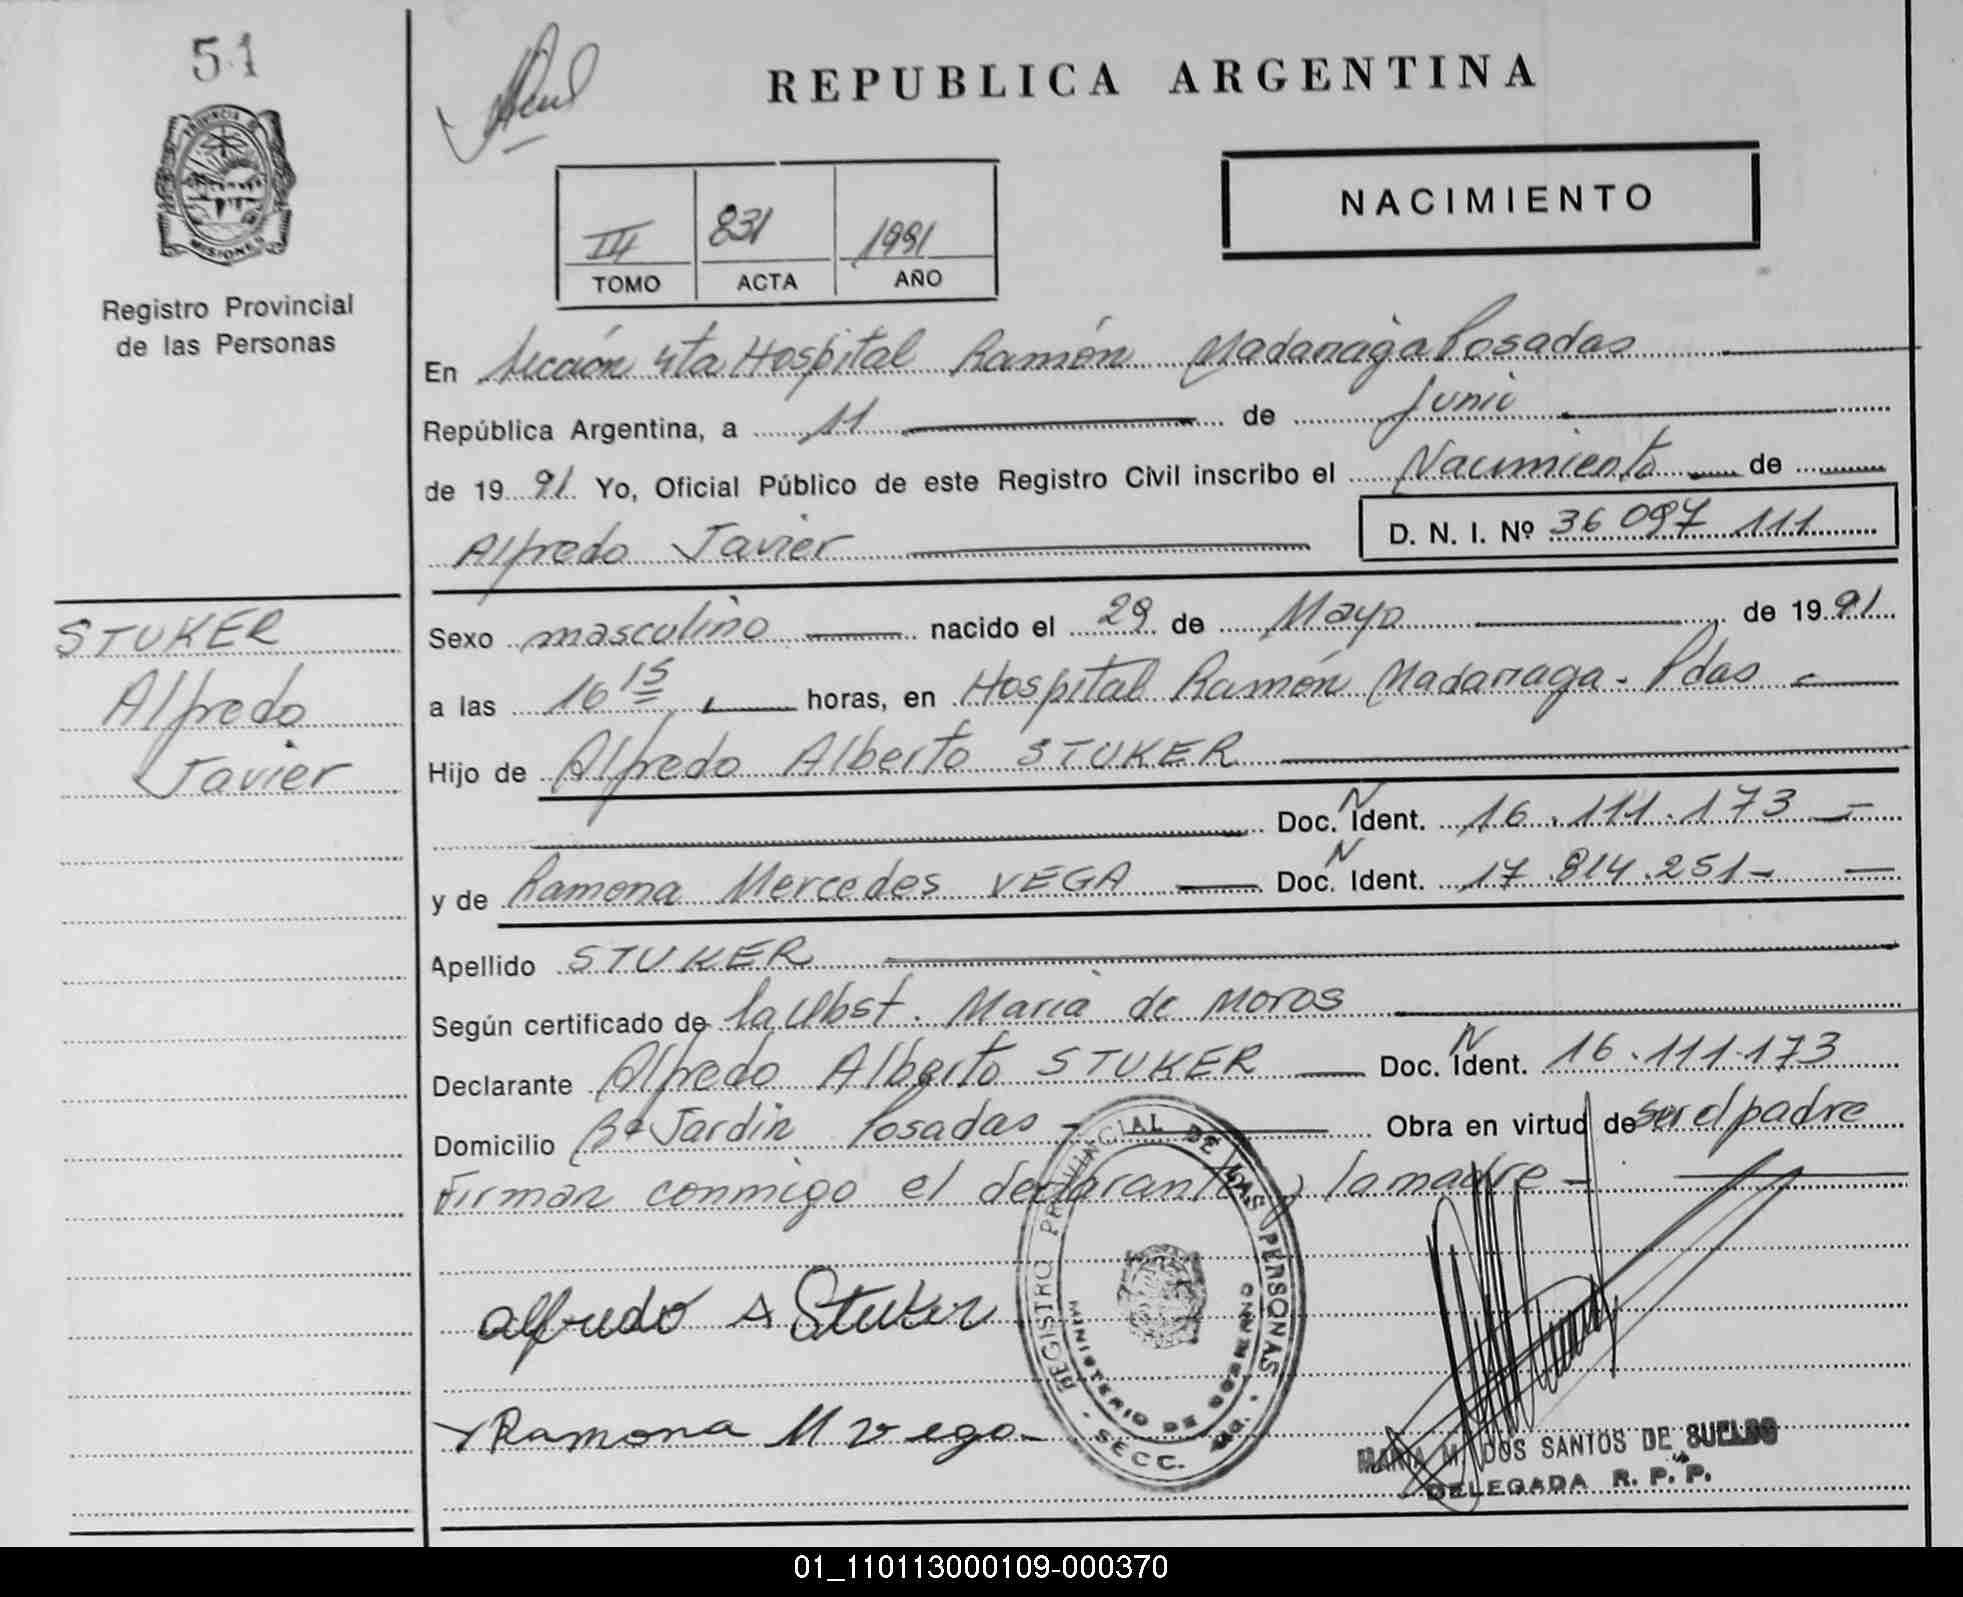 51
PROVINCIA DE
MISIONES
Registro Provincial
de las Personas
STUKER
Alfredo
Javier
REPUBLICA ARGENTINA
NACIMIENTO
III 831 1991
TOMO ACTA AÑO
En Sección 4ta Hospital Ramón Madariaga Posadas
República Argentina, a 11 de Junio
de 1991 Yo, Oficial Público de este Registro Civil inscribo el Nacimiento de
Alfredo Javier D. N. I. Nº 36 097 111
Sexo masculino nacido el 29 de Mayo de 1991
a las 16 15 horas, en Hospital Ramón Madariaga - Pdas -
Hijo de Alfredo Alberto STUKER
Doc. N Ident. 16.111.173 -
y de Ramona Mercedes VEGA Doc. N Ident. 17.814.251 -
Apellido STUKER
Según certificado de la Obst. Maria de Moros
Declarante Alfredo Alberto STUKER Doc. N Ident. 16.111.173
Domicilio Bº Jardin Posadas - Obra en virtud de ser el padre
Firman conmigo el declarante y la madre -
Alfredo A Stuker
Ramona M Vega
REGISTRO PROVINCIAL DE LAS PERSONAS
MINISTERIO DE GOBIERNO
SECC.
MARIA M. DOS SANTOS DE SUELDO
DELEGADA R. P. P.
01_110113000109-000370